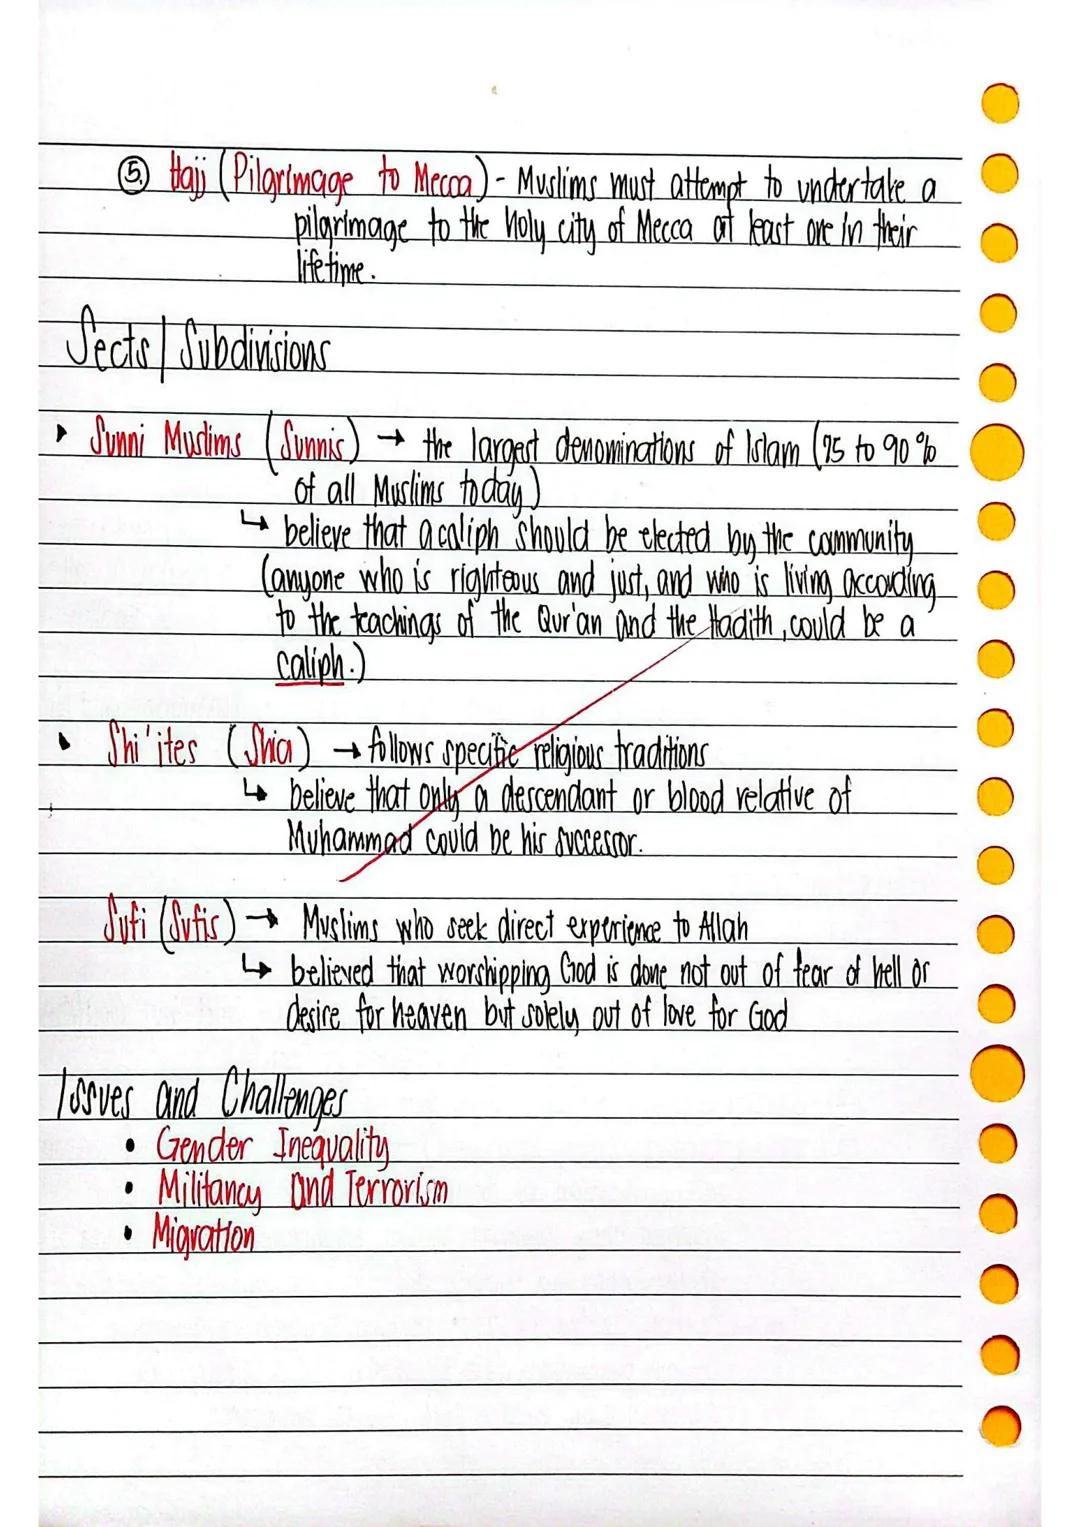 5. Hajj (Pilgrimage to Mecca) - Muslims must attempt to undertake a
pilgrimage to the Holy city of Mecca at least one in their
lifetime.
Sects / Subdivisions
Sunni Muslims (Sunnis) → the largest denominations of Islam (75 to 90 %
of all Muslims today)
↳ believe that a caliph should be elected by the community
(anyone who is righteous and just, and who is living according
to the teachings of the Qur'an and the Hadith, could be a
caliph.)
Shi'ites (Shia) → follows specific religious traditions
↳ believe that only a descendant or blood relative of
Muhammad could be his successor.
Sufi (Sufis) → Muslims who seek direct experience to Allah
↳ believed that worshipping God is done not out of fear of hell or
desire for heaven but solely out of love for God
Issues and Challenges
• Gender Inequality
• Militancy and Terrorism
• Migration